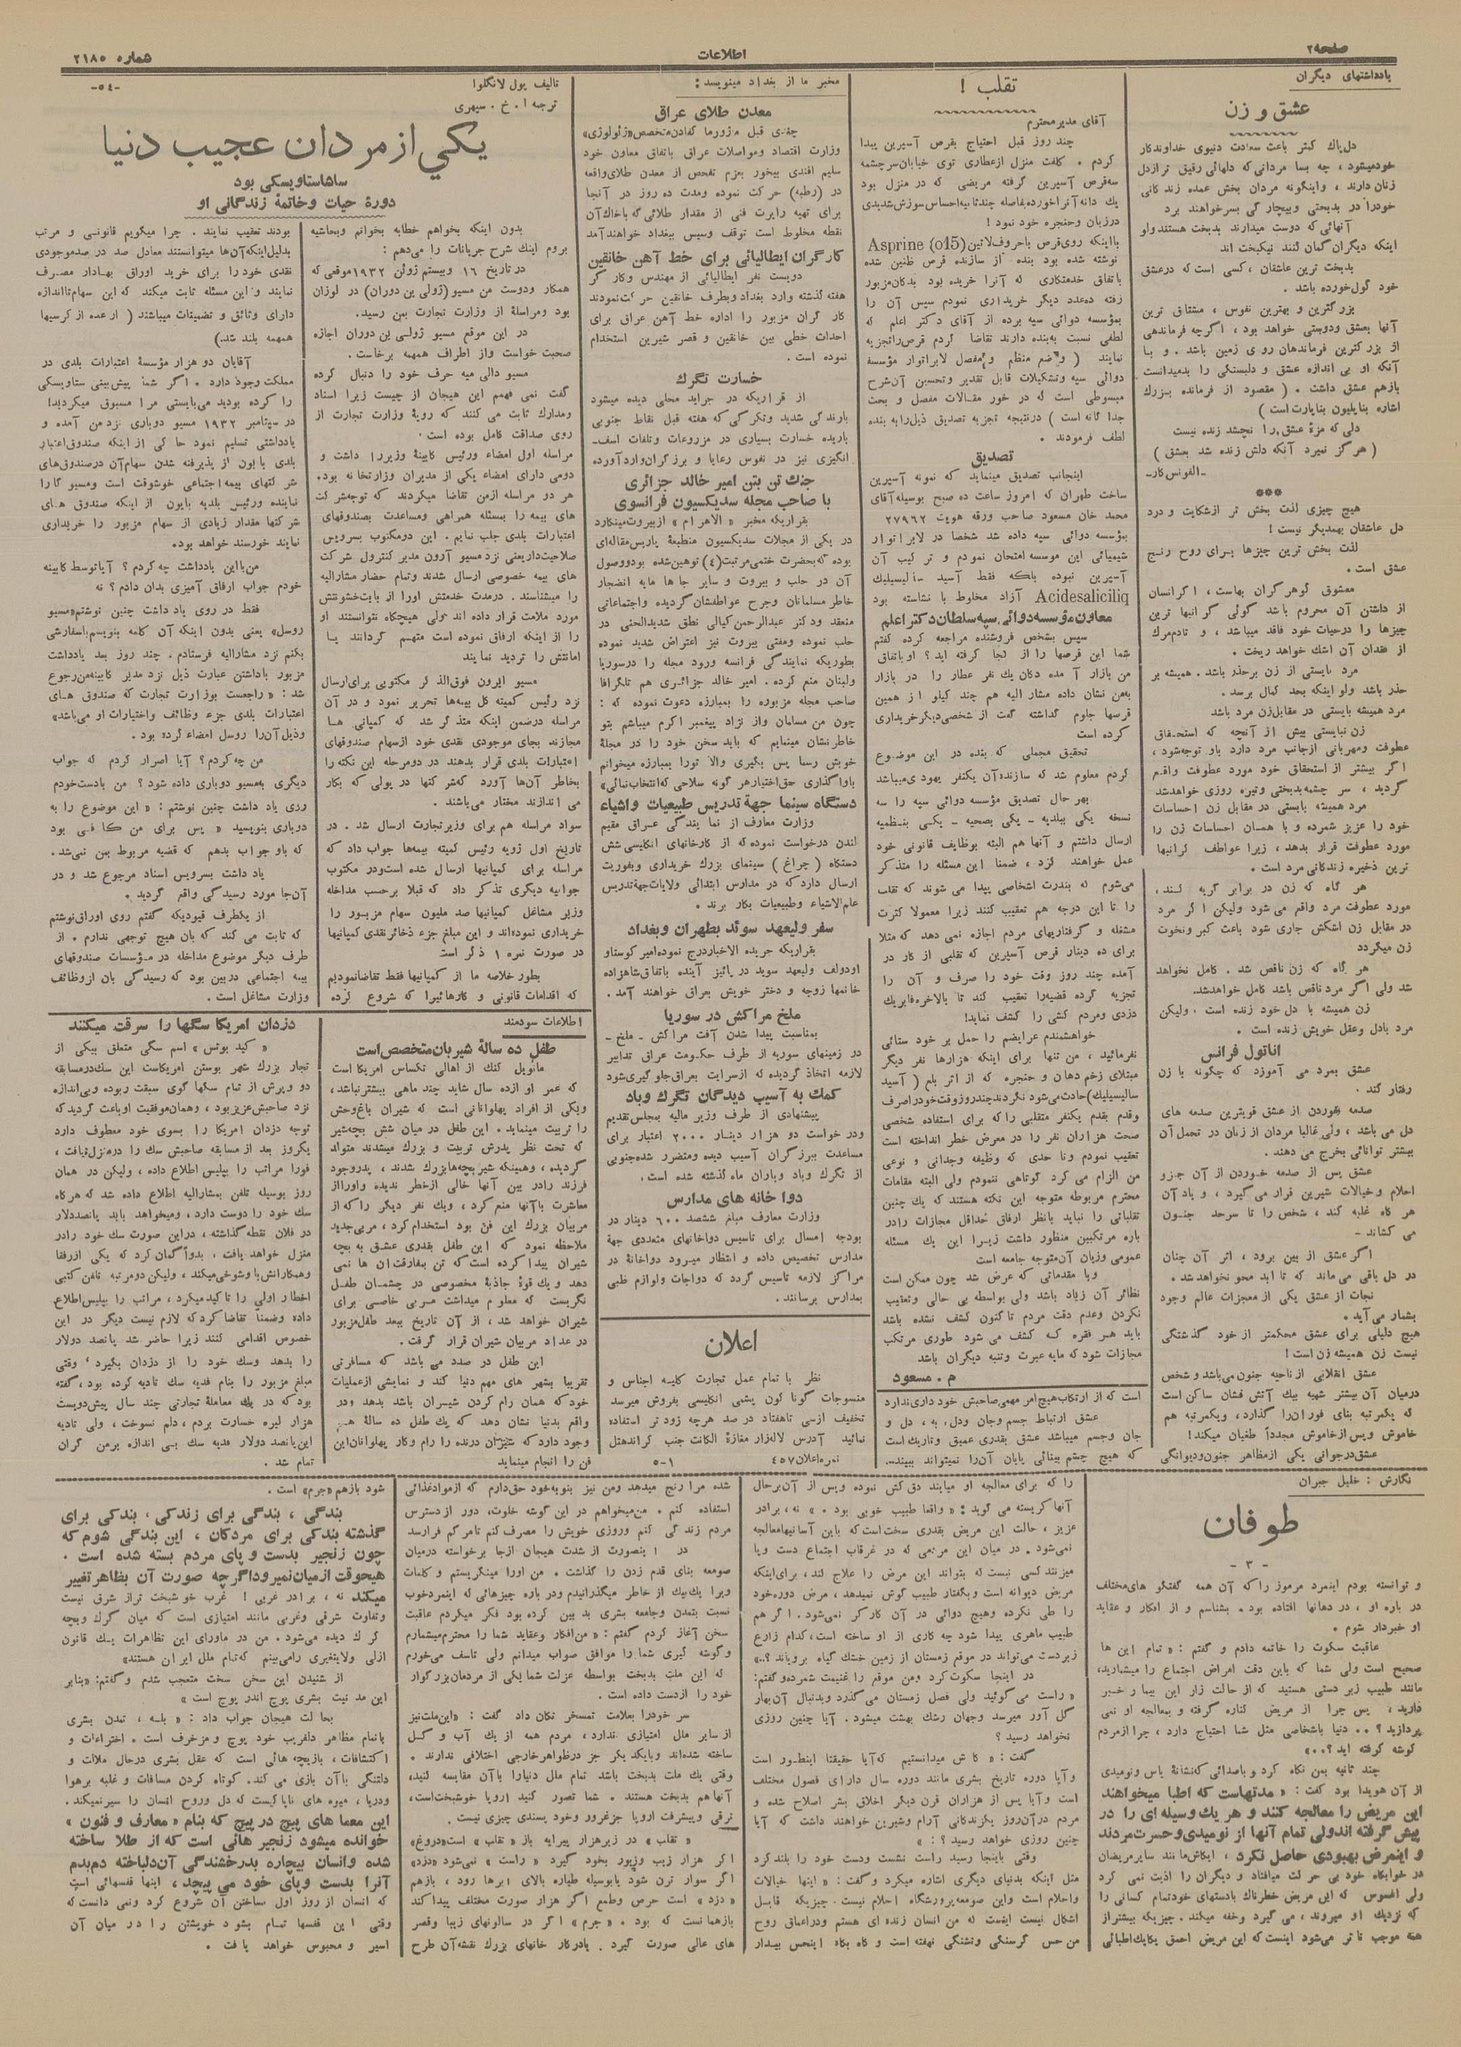 صفحه ۲
اطلاعات
شماره ۲۱۸۵
یادداشتهای دیگران
عشق و زن
دل‌پاك کمتر باعث سعادت دنیوی خداوندکار
خودمیشود ، چه بسا مردانی‌که دلهائی رقیق ترازدل
زنان دارند ، واینگونه مردان بخش عمده زندگانی
خودرا در بدبختی وبیچارگی بسرخواهند برد
آنهائی که دوست میدارند بدبخت هستندولو
اینکه دیگران گمان کنند نیکبخت اند
بدبخت ترین عاشقان ، کسی است که درعشق
خود گول‌خورده باشد .
بزرگترین و بهترین نفوس ، مشتاق ترین
آنها بعشق ودوستی خواهد بود ، اگرچه فرماندهی
از بزرگترین فرماندهان روی زمین باشد . و با
آنکه او بی اندازه عشق و دلبستگی را بدمیدانست
بازهم عشق داشت . ( مقصود از فرمانده بزرك
اشاره بناپلیون بناپارت است )
دلی که مزهٔ عشق را نچشد زنده نیست
( هرگز نمیرد آنکه دلش زنده شد بعشق )
-الفونس‌کار-
***
هیچ چیزی لذت بخش تر ازشکایت و درد
دل عاشقان بهمدیگر نیست !
لذت بخش ترین چیزها برای روح رنج
عشق است .
معشوق گوهر گران بهاست ، اگرانسان
از داشتن آن محروم باشد گوئی گرانبها ترین
چیزها را درحیات خود فاقد میباشد ، و تادم‌مرك
از فقدان آن اشك خواهد ریخت .
مرد بایستی از زن برحذر باشد . همیشه بر
حذر باشد ولو اینکه بحد کمال برسد .
مرد همیشه بایستی در مقابل‌زن مرد باشد
زن نبایستی بیش از آنچه که استحقاق
عطوفت ومهربانی ازجانب مرد دارد باو توجه‌شود ،
اگر بیشتر از استحقاق خود مورد عطوفت واقع
گردید ، سر چشمه‌بدبختی وتیره روزی خواهدشد
مرد همیشه بایستی در مقابل زن احساسات
خود را عزیز شمرده و با همان احساسات زن را
مورد عطوفت قرار بدهد ، زیرا عواطف گرانبها
ترین ذخیره زندگانی مرد است .
هر گاه که زن در برابر گریه کند ،
مورد عطوفت مرد واقع می شود ولیکن اگر مرد
در مقابل زن اشکش جاری شود باعث کبر ونخوت
زن میگردد
هر گاه که زن ناقص شد . کامل نخواهد
شد ولی اگر مرد ناقص باشد کامل خواهدشد.
زن همیشه با دل خود زنده است . ولیکن
مرد بادل وعقل خویش زنده است .
اناتول فرانس
عشق بمرد می آموزد که چگونه با زن
رفتار کند .
صدمه خوردن از عشق قویترین صدمه های
دل می باشد ، ولی غالبا مردان از زنان در تحمل آن
بیشتر توانائی بخرج می دهند .
عشق پس از صدمه خوردن از آن جزو
احلام وخیالات شیرین قرار می‌گیرد ، و یادآن
هر گاه غلبه کند ، شخص را تا سرحد جنون
می کشاند -
اگر عشق از بین برود ، اثر آن چنان
در دل باقی می‌ماند که تا ابد محو نخواهدشد .
نجات از عشق یکی از معجزات عالم وجود
بشمار می‌آید .
هیچ دلیلی برای عشق محکمتر از خود گذشتگی
نیست زن همیشه‌زن است !
عشق انقلابی ازناحیه جنون‌می‌باشد وشخص
درمیان آن بیشتر شهبه بیك آتش فشان ساکن است
که یکمرتبه بنای فوران‌را گذارد ، ویکمرتبه هم
خاموش وپس ازخاموش مجدداً طغیان میکند !
عشق‌درجوانی یکی ازمظاهر جنون‌ودیوانگی
تقلب !
آقای مدیرمحترم
چند روز قبل احتیاج بقرص آسپرین پیدا
کردم . کلفت منزل ازعطاری توی خیابان‌سرچشمه
سه‌قرص آسپرین گرفته مریضی که در منزل بود
یك دانه آنراخورده‌بفاصله چندثانیه‌احساس‌سوزش‌شدیدی
درزبان وحنجره خود نمود !
بااینکه روی‌قرص باحروف‌لاتین (Asprine (o15
نوشته شده بود بنده از سازنده قرص ظنین شده
باتفاق خدمتکاری که آنرا خریده بود بدکان‌مزبور
رفته ده‌عدد دیگر خریداری نمودم سپس آن را
بمؤسسه دوائی سپه برده از آقای دکتر اعلم که
لطفی نسبت به‌بنده دارند تقاضا کردم قرص‌راتجزیه
نمایند ( وضع منظم و مفصل لابراتوار مؤسسه
دوائی سپه وتشکیلات قابل تقدیر وتحسین آن‌شرح
مبسوطی است که در خور مقالات مفصل و بحث
جداگانه است ) درنتیجه تجزیه تصدیق ذیل‌رابه بنده
لطف فرمودند .
تصدیق
اینجانب تصدیق مینماید که نمونه آسپرین
ساخت طهران که امروز ساعت ده صبح بوسیله‌آقای
محمد خان مسعود صاحب ورقه هویت ۲۷۹۶۲
بمؤسسه دوائی سپه داده شد شخصا در لابراتوار
شیمیائی این موسسه‌امتحان نمودم و ترکیب آن
آسپرین نبوده بلکه فقط آسید سالیسیلیك
Acidesaliciliq آزاد مخلوط با نشاسته بود
معاون‌مؤسسه‌دوائی سپه‌سلطان‌دکتراعلم
سپس بشخص فروشنده مراجعه کرده گفتم
شما این قرصها را از کجا گرفته اید؟ اوباتفاق
من بازار آمده دکان‌یك نفر عطار را در بازار
به‌من نشان داده مشار الیه هم چند کیلو از همین
قرسها جلوم گذاشته گفت از شخصی‌دیگرخریداری
کرده است
تحقیق مجملی که بنده در این موضوع
کردم معلوم شد که سازنده‌آن یکنفر یهودی‌میباشد
بهر حال تصدیق مؤسسه دوائی سپه را سه
نسخه یکی ببلدیه - یکی بصحیه - یکی بنظمیه
ارسال داشتم و آنها هم البته بوظایف قانونی خود
عمل خواهند کرد ، ضمنا این مسئله را متذکر
می‌شوم که بندرت اشخاصی پیدا می شوند که تقلب
را تا این درجه هم تعقیب کنند زیرا معمولا کثرت
مشغله و گرفتاریهای مردم اجازه نمی دهد که مثلا
برای ده دینار قرص آسپرین که تقلبی از کار در
آمده چند روز وقت خود را صرف و آن را
تجزیه کرده قضیه‌را تعقیب کند تا بالاخره‌فابریك
دزدی ومردم کشی را کشف نماید!
خواهشمندم عرایضم را حمل بر خود ستائی
نفرمائید ، من تنها برای اینکه هزارها نفر دیگر
مبتلای زخم دهان و حنجره که از اثر بلع ( آسید
سالیسیلیك)حادث‌می‌شود نگردندچندروزوقت خودراصرف
وقدم بقدم یکنفر متقلبی راکه برای استفاده شخصی
صحت هزاران نفر را در معرض خطر انداخته است
تعقیب نمودم وتا حدی که وظیفه وجدانی و نوعی
من الزام می کرد کوتاهی ننمودم ولی البته مقامات
محترم مربوطه متوجه این نکته هستند که یك چنین
تقلباتی را نباید بانظر ارفاق حداقل مجازات رادر
باره مرتکبین منظور داشت زیرا این یك مسئله
عمومی وزیان آن‌متوجه جامعه است
وبا مقدماتی که عرض شد چون ممکن است
نظائر آن زیاد باشد ولی بواسطه بی حالی وتعقیب
نکردن وعدم دقت مردم تاکنون کشف نشده باشد
باید هر فقره که کشف می شود طوری مرتکب
مجازات شود که مایه عبرت وتنبه دیگران باشد
م . مسعود
است که از ارتکاب هیچ‌امر مهمی‌صاحبش خود داری‌ندارد
عشق ارتباط جسم وجان ودل، به ، دل و
جان وجسم میباشد عشق بقدری عمیق وتاریك است
که هیچ چشم بینائی پایان آن‌را نمیتواند ببیند...
مخبر ما از بغداد مینویسد :
معدن طلای عراق
وزارت اقتصاد ومواصلات عراق باتفاق معاون خود
سلیم افندی بیخور بعزم تفحص از معدن طلای‌واقعه
در (رطبه) حرکت نموده ومدت ده روز در آنجا
برای تهیه راپرت فنی از مقدار طلائی که باخاك‌آن
نقطه مخلوط است توقف وسپس ببغداد خواهندآمد
کارگران ایطالیائی برای خط آهن خانقین
دویست نفر ایطالیائی از مهندس و کارگر
هفته گذشته وارد بغداد وبطرف خانقین حرکت‌نمودند
کار گران مزبور را اداره خط آهن عراق برای
احداث خطی بین خانقین و قصر شیرین استخدام
نموده است .
خسارت تگرك
از قراریکه در جراید محلی دیده میشود
بارندگی شدید وتگرگی که هفته قبل نقاط جنوبی
باریده خسارت بسیاری در مزروعات وتلفات اسف-
انگیزی نیز در نفوس رعایا و برزگران‌وارد‌آورده
جنك تن بتن امیر خالد جزائری
با صاحب مجله سدیکسیون فرانسوی
بقراریکه مخبر « الاهرام » ازبیروت‌مینگارد
در یکی از مجلات سدیکسیون منطبعهٔ پاریس‌مقاله‌ای
بوده که‌بحضرت ختمی‌مرتبت (ع) توهین‌شده بودووصول
آن در حلب و بیروت و سایر جاها مایه انضجار
خاطر مسلمانان وجرح عواطفشان گردیده واجتماعاتی
منعقد ودکتر عبدالرحمن‌کیالی نطق شدیدالحنی در
حلب نموده ومفتی بیروت نیز اعتراض شدید نموده
بطوریکه نمایندگی فرانسه ورود مجله را درسوریا
ولبنان منع کرده . امیر خالد جزائری هم تلگرافا
صاحب مجله مزبوره را بمبارزه دعوت نموده که :
چون من مسلمان واز نژاد پیغمبر اکرم میباشم بتو
خاطرنشان مینمایم که باید سخن خود را در مجلهٔ
خویش رسما پس بگیری والا تورا بمبارزه میخوانم
باواگذاری حق‌اختیارهر گونه سلاحی که‌انتخاب‌نمائی»
دستگاه سینما جهة تدریس طبیعیات و اشیاء
وزارت معارف از نمایندگی عراق مقیم
لندن درخواست نموده‌که از کارخانهای انگلیسی شش
دستگاه ( چراغ ) سینمای بزرك خریداری وبفوریت
ارسال دارد که در مدارس ابتدائی ولایات‌جهةتدریس
علم‌الاشیاء وطبیعیات بکار برند .
سفر ولیعهد سوئد بطهران وبغداد
بقراریکه جریده الاخباردرج نموده‌امیر گوستاو
اودولف ولیعهد سوید در پائیز آینده باتفاق‌شاهزاده
خانمها زوجه و دختر خویش بعراق خواهند آمد.
ملخ مراکش در سوریا
بمناسبت پیدا شدن آفت مراکش - ملخ -
در زمینهای سوریه از طرف حکومت عراق تدابیر
لازمه اتخاذ گردیده که ازسرایت بعراق‌جلوگیری‌شود
کمك به آسیب دیدگان تگرك وباد
پیشنهادی از طرف وزیر مالیه بمجلس‌تقدیم
ودرخواست دو هزار دینار ۲۰۰۰ اعتبار برای
مساعدت ببرزگران آسیب دیده ومتضرر شده‌جنوبی
از تگرك وباد وباران ماه گذشته شده است .
دواخانه های مدارس
وزارت معارف مبلغ ششصد ۶۰۰ دینار در
بودجه امسال برای تاسیس دواخانهای متعددی جهة
مدارس تخصیص داده و انتظار میرود دواخانهٔ در
مراکز لازمه تاسیس گردد که دواجات ولوازم طبی
بمدارس برسانند .
اعلان
نظر باتمام عمل تجارت کلیه اجناس و
منسوجات گوناگون پشمی انگلیسی بفروش میرسد
تخفیف ازسی تاهفتاد در صد هرچه زودتر استفاده
نمائید آدرس لاله‌زار مغازهٔ الکانت جنب گراندهتل
نمره‌اعلان ۴۵۷
۵-۱
تالیف پول لانگلوا
ترجمه ا . خ . سپهری
-۵۴-
یکی از مردان عجیب دنیا
ساشاستاویسکی بود
دورهٔ حیات وخاتمهٔ زندگانی او
بدون اینکه بخواهم خطابه بخوانم وبحاشیه
بروم اینك شرح جریانات را می‌دهم :
در تاریخ ۱۶ وبیستم ژوئن ۱۹۳۲موقعی‌که
همکار ودوست من مسیو (ژولی بن دوران) در لوزان
بود ومراسلهٔ از وزارت تجارت بمن رسید.
در این موقع مسیو ژولسی بن دوران اجازه
صحبت خواست واز اطراف همهمه برخاست .
مسیو دالی میه حرف خود را دنبال کرده
گفت نمی فهمم این هیجان از چیست زیرا اسناد
ومدارك ثابت می کنند که رویهٔ وزارت تجارت از
روی صداقت کامل بوده است .
مراسله اول امضاء ورئیس کابینهٔ وزیررا داشت و
دومی دارای امضاء یکی از مدیران وزارتخانه بود.
هر دو مراسله ازمن تقاضا میکردند که توجه‌شرکت
های بیمه را بمسئله همراهی ومساعدت بصندوقهای
اعتبارات بلدی جلب نمایم . این دومکتوب بسرویس
صلاحیت‌داریعنی نزد مسیو آرون مدیر کنترول شرکت
های بیمه خصوصی ارسال شدند وتمام حضار مشارالیه
را میشناسند . درمدت خدمتش اورا از بابت‌خشونتش
مورد ملامت قرار داده اند ولی هیچکاه نتوانستند او
را از اینکه ارفاق نموده است متهم گردانند یا
امانتش را تردید نمایند
مسیو ایرون فوق‌الذکر مکتوبی برای‌ارسال
نزد رئیس کمیته کل بیمه‌ها تحریر نمود و در آن
مراسله درضمن اینکه متذکر شد که کمپانی ها
مجازند بجای موجودی نقدی خود ازسهام صندوقهای
اعتبارات بلدی قرار بدهند در دومرحله این نکته را
بخاطر آن‌ها آورد که‌شرکتها در پولی که بکار
می اندازند مختار می‌باشند .
سواد مراسله هم برای وزیرتجارت ارسال شد . در
تاریخ اول ژویه رئیس کمیته بیمه‌ها جواب داد که
مراسله برای کمپانیها ارسال شده است‌ودر مکتوب
جوابیه دیگری تذکر داد که قبلا برحسب مداخله
وزیر مشاغل کمپانیها صد ملیون سهام مزبور را
خریداری نموده‌اند و این مبلغ جزء ذخائر‌نقدی کمپانیها
در صورت نمره ۱ ذکر است
بطور خلاصه ما از کمپانیها فقط تقاضانمودیم
که اقدامات قانونی و کارهائیرا که شروع کرده
بودند تعقیب نمایند . چرا میگویم قانونی و مرتب
بدلیل‌اینکه‌آن‌ها میتوانستند معادل صد در صدموجودی
نقدی خود‌را برای خرید اوراق بهادار مصرف
نمایند و این مسئله ثابت میکند که این سهام‌تااندازه
دارای وثائق و تضمینات میباشند ( از عده از کرسیها
همهمه بلند شد.)
آقایان دو هزار مؤسسهٔ اعتبارات بلدی در
مملکت وجود دارد . اگر شما پیش‌بینی ستاویسکی
را کرده بودید می‌بایستی مرا مسبوق میکردید!
در سپتامبر ۱۹۳۲ مسیو دوباری نزد من آمده و
یادداشتی تسلیم نمود حاکی از اینکه صندوق‌اعتبار
بلدی بایون از پذیرفته شدن سهام‌آن درصندوق‌های
شرکتهای بیمه‌اجتماعی خوشوقت است ومسیو گارا
نماینده ورئیس بلدیه بایون از اینکه صندوق های
شرکتها مقدار زیادی از سهام مزبور را خریداری
نمایند خورسند خواهد بود.
من‌با این یادداشت چه کردم ؟ آیاتوسط کابینه
خودم جواب ارفاق آمیزی بدان دادم ؟ نه
فقط در روی یاد داشت چنین نوشتم «مسیو
روسل» یعنی بدون اینکه آن کلمه بنویسم یاسفارشی
بکنم نزد مشارالیه فرستادم . چند روز بعد یادداشت
مزبور باداشتن عبارت ذیل نزد مدیر کابینه‌من‌رجوع
شد : «راجعست بوزارت تجارت که صندوق های
اعتبارات بلدی جزء وظائف واختیارات او می‌باشد»
وذیل آن‌را روسل امضاء کرده بود .
من چه کردم؟ آیا اصرار کردم که جواب
دیگری به‌مسیو دوباری داده شود ؟ من بادست‌خودم
روی یاد داشت چنین نوشتم : «این موضوع را به
درباری بنویسید » پس برای من کافی بود
که باو جواب بدهم که قضیه مربوط بمن نمی‌شد.
یاد داشت بسرویس اسناد مرجوع شد و در
آن‌جا مورد رسیدگی واقع گردید .
از یکطرف قیودیکه گفتم روی اوراق‌نوشتم
که ثابت می کند که بان هیچ توجهی ندارم . از
طرف دیگر موضوع مداخله در مؤسسات صندوقهای
بیمه اجتماعی دربین بود که رسیدگی بان ازوظائف
وزارت مشاغل است .
اطلاعات سودمند
طفل ده سالهٔ شیربان‌متخصص‌است
مانویل کنك از اهالی تکساس امریکا است
که عمر او ازده سال شاید چند ماهی بیشترنباشد،
ویکی از افراد پهلوانانی است که شیران باغ‌وحش
را تربیت مینماید . این طفل در میان شش بچه‌شیر
که تحت نظر پدرش تربیت و بزرك میشدند متولد
گردیده ، وهمینکه شیربچه‌هابزرك شدند ، پدروجود
فرزند رادر بین آنها خالی ازخطر ندیده واورااز
معاشرت باآنها منع کرد ، ویك نفر دیگر را که از
مربیان بزرك این فن بود استخدام کرد ، مربی‌جدید
ملاحظه نمود که این طفل بقدری عشق به بچه
شیران پیدا کرده است که تن بمفارقت آن ها نمی
دهد ویك قوهٔ جاذبهٔ مخصوصی در چشمان طفل
نگریست که معلوم میداشت مربی خاصی برای
شیران خواهد شد ، از آن تاریخ ببعد طفل‌مزبور
در عداد مربیان شیران قرار گرفت .
این طفل در صدد می باشد که مسافرتی
تقریبا بشهر های مهم دنیا کند و نمایشی ازعملیات
خود که همان رام کردن شیران باشد بدهد ودر
واقع بدنیا نشان دهد که یك طفل ده سالهٔ هم
وجود دارد که شیران درنده را رام وکار پهلوانان‌این
فن را انجام مینماید
دزدان امریکا سگها را سرقت میکنند
« کید بوتس » اسم سگی متعلق بیکی از
تجار بزرك شهر بوستن امریکاست این سك‌درمسابقه
دو وپرش از تمام سگها گوی سبقت ربوده وبی‌اندازه
نزد صاحبش‌عزیز بود ، وهمان‌موفقیت اوباعث گردید که
توجه دزدان امریکا را بسوی خود معطوف دارد
یکروز بعد از مسابقه صاحبش سك را درمنزل‌نیافت،
فورا مراتب را بپلیس اطلاع داده ، ولیکن در همان
روز بوسیله تلفن بمشارالیه اطلاع داده شد که هرکاه
سك خود را دوست دارد ، ومیخواهد باید پانصددلار
در فلان نقطه گذاشته ، دراین صورت سك خود رادر
منزل خواهد یافت . بدواً گمان کرد که یکی ازرفقا
وهمکارانش باو شوخی‌میکند ، ولیکن دومرتبه تلفن کتبی
اخطار اولی را تاکیدمیکرد ، مراتب را بپلیس‌اطلاع
داده وضمنا تقاضا کرد که لازم نیست دیگر در این
خصوص اقدامی کنند زیرا حاضر شد پانصد دولار
را بدهد وسك خود را از دزدان بگیرد ‌، وقتی
مبلغ مزبور را بنام فدیه سك تادیه کرده بود ، گفته
بود که در یك معاملهٔ تجارتی چند سال پیش‌دویست
هزار لیره خسارت بردم ، دلم نسوخت ، ولی تادیه
این‌پانصد دولار فدیه سك بی اندازه برمن گران
تمام شد .
نگارش : خلیل جبران
طوفان
- ۳ -
و توانسته بودم اینمرد مرموز راکه آن همه گفتگو های‌مختلف
در باره او ، در دهانها افتاده بود . بشناسم و از افکار و عقاید
او خبردار شوم .
عاقبت سکوت را خاتمه دادم و گفتم : « تمام این ها
صحیح است ولی شما که باین دقت امراض اجتماع را میشمارید،
مانند طبیب زبر دستی هستید که از حالت زار این بیمار خبر
دارید، پس چرا از مریض کناره گرفته و بمعالجه او نمی
پردازید ؟ .. دنیا باشخاصی مثل شما احتیاج دارد ، چرا ازمردم
گوشه گرفته اید ؟..»
چند ثانیه بمن نگاه کرد و باصدائی که‌نشانهٔ یاس ونومیدی
از آن هویدا بود گفت : « مدتهاست که اطبا میخواهند
این مریض را معالجه کنند و هر یك وسیله ای را در
پیش گرفته اندولی تمام آنها از نومیدی وحسرت‌مردند
و اینمرض بهبودی حاصل نکرد ، ایکاش‌مانند سایرمریضان
در خوابگاه خود بی حرکت میافتاد و دیگران را اذیت نمی کرد
ولی افسوس که این مریض خطرناك بادستهای خودتمام کسانی را
که نزدیك او میروند ، می‌گیرد وخفه میکند . چیزیکه بیشتراز
همه موجب تاثر می‌شود اینست‌که این مریض احمق یکایك‌اطبائی
را که برای معالجه او میایند دق‌کش نموده وپس از آن‌برحال
آنها گریسته می گوید : « واقعا طبیب خوبی بود . » نه ، برادر
عزیز ، حالت این مریض بقدری سخت‌است که باین آسانیهامعالجه
نمی‌شود . در میان این مردمی که در غرقاب اجتماع دست وپا
میزنند کسی نیست که بتواند این مرض را علاج کند ، برای‌اینکه
مریض دیوانه است و بگفتار طبیب گوش نمیدهد ، مرض دوره‌خود
را طی نکرده وهیچ دوائی در آن کارگر نمی‌شود . اگرهم
طبیب ماهری پیدا شود چه کاری از او ساخته است ، کدام زارع
زبردست می‌تواند در موقع زمستان از زمین خشك گیاه برویاند ؟..»
در اینجا سکوت‌کرد ومن موقع را غنیمت شمرده‌وگفتم:
« راست می‌گوئید ولی فصل زمستان می گذرد وبدنبال آن‌بهار
گل آور میرسد وجهان رشك بهشت میشود . آیا چنین روزی
نخواهد رسید ؟
گفت : « کاش میدانستیم که‌آیا حقیقتا اینطور است
وآیا دوره تاریخ بشری مانند دوره سال دارای فصول مختلف
است وآیا پس از هزاران قرن دیگر اخلاق بشر اصلاح شده و
مردم درآن‌روز بکزندگانی آرام وشیرین خواهند داشت که آیا
چنین روزی خواهد رسید ؟ : »
وقتی باینجا رسید راست نشست ودست خود را بلندکرد
مثل اینکه بدنیای دیگری اشاره میکرد وگفت : « اینها خیالات
واحلام است و این صومعه‌پرورشگاه احلام نیست . چیزیکه قابل
اشکال نیست اینست‌که من انسان زنده ای هستم ودراعماق روح
من حس گرسنگی وتشنگی نهفته است و گاه بگاه اینحس بیدار
شده مرا رنج میدهد ومن نیز بنوبه‌خود حق‌دارم که ازموادغذائی
استفاده کنم . من‌میخواهم در این گوشه خلوت، دور ازدسترس
مردم زندگی کنم وروزی خویش را مصرف کنم تامرگم فرارسد
در اینصورت از شدت هیجان ازجا برخواسته درمیان
صومعه بنای قدم زدن را گذاشت . من اورا مینگریستم و کلمات
ویرا یك‌بیك از خاطر میگذرانیدم ودر باره چیزهائی که اینمردخوب
نسبت بتمدن وجامعه بشری بد بین کرده بود فکر میکردم عاقبت
سخن آغاز کردم گفتم : «من‌افکار وعقاید شما را محترم‌میشمارم
وگوشه گیری شما را موافق صواب میدانم ولی تاسف می‌خورم
که این ملت بدبخت بواسطه عزلت شما یکی از مردمان‌بزرگوار
خود را ازدست داده است .
سر خودرا بعلامت تمسخر تکان داد گفت : «این‌ملت‌نیز
از سایر ملل امتیازی ندارد ، مردم همه از یك آب و گل
ساخته شده‌اند وبایکد یگر جز درظواهرخارجی اختلافی ندارند .
وقتی یك ملت بدبخت باشد تمام ملل دنیارا باآن مقایسه کنید،
آنهاهم بدبخت هستند . شما تصور کنید اروپا خوشبخت‌است،
ترقی وپیشرفت اروپا جزغرور وخود پسندی چیزی نیست .
« تقلب » در زیرهزار پیرایه باز «تقلب» است«دروغ»
اگر هزار زیب وزیور بخود گیرد « راست » نمی‌شود «دزد»
اگر سوار ترن شود یابوسیله طیاره بالای ابرها رود ، بازهم
« دزد » است حرص وطمع اگر هزار صورت مختلف پیدا کند
بازهمانست که بود . « جرم » اگر در سالونهای زیبا وقصر
های عالی صورت گیرد . یادرکار خانهای بزرك نقشه‌آن طرح
شود بازهم «جرم» است .
بندگی ، بندگی برای زندگی ، بندگی برای
گذشته بندگی برای مردگان ، این بندگی شوم که
چون زنجیر بدست و پای مردم بسته شده است .
هیچوقت ازمیان نمیروداگرچه صورت آن بظاهرتغییر
میکند نه ، برادر عربی ! غرب خوشبخت تراز شرق نیست
وتفاوت شرقی وغربی مانند امتیازی است که میان گرك وبچه
گرك دیده می‌شود . من در ماورای این تظاهرات یك قانون
ازلی ولایتغیری رامی‌بینم که‌تمام ملل ایران هستند»
از شنیدن این سخن سخت متعجب شدم وگفتم: «بنابر
این مد نیت بشری پوچ اندر پوچ است »
بحالت هیجان جواب داد : «بله ، تمدن بشری
باتمام مظاهر دلفریب خود پوچ و مزخرف است . اختراعات و
اکتشافات ، بازیچه هائی است که عقل بشری درحال ملالت و
دلتنگی باآن بازی می کند. کوتاه کردن مسافات و غلبه برهوا
ودریا ، میوه های ناپاکیست که دل وروح انسان را سیرنمیکند.
این معما های پیچ در پیچ که بنام « معارف و فنون »
خوانده میشود زنجیر هائی است که از طلا ساخته
شده وانسان بیچاره بدرخشندگی آن‌دلباخته دم‌بدم
آنرا بدست وپای خود می پیچد، اینها قفسهائی است
که انسان از روز اول ساختن آن شروع کرد ونمی دانست‌که
وقتی این قفسها تمام بشود خویشتن را در میان آن
اسیر و محبوس خواهد یافت .